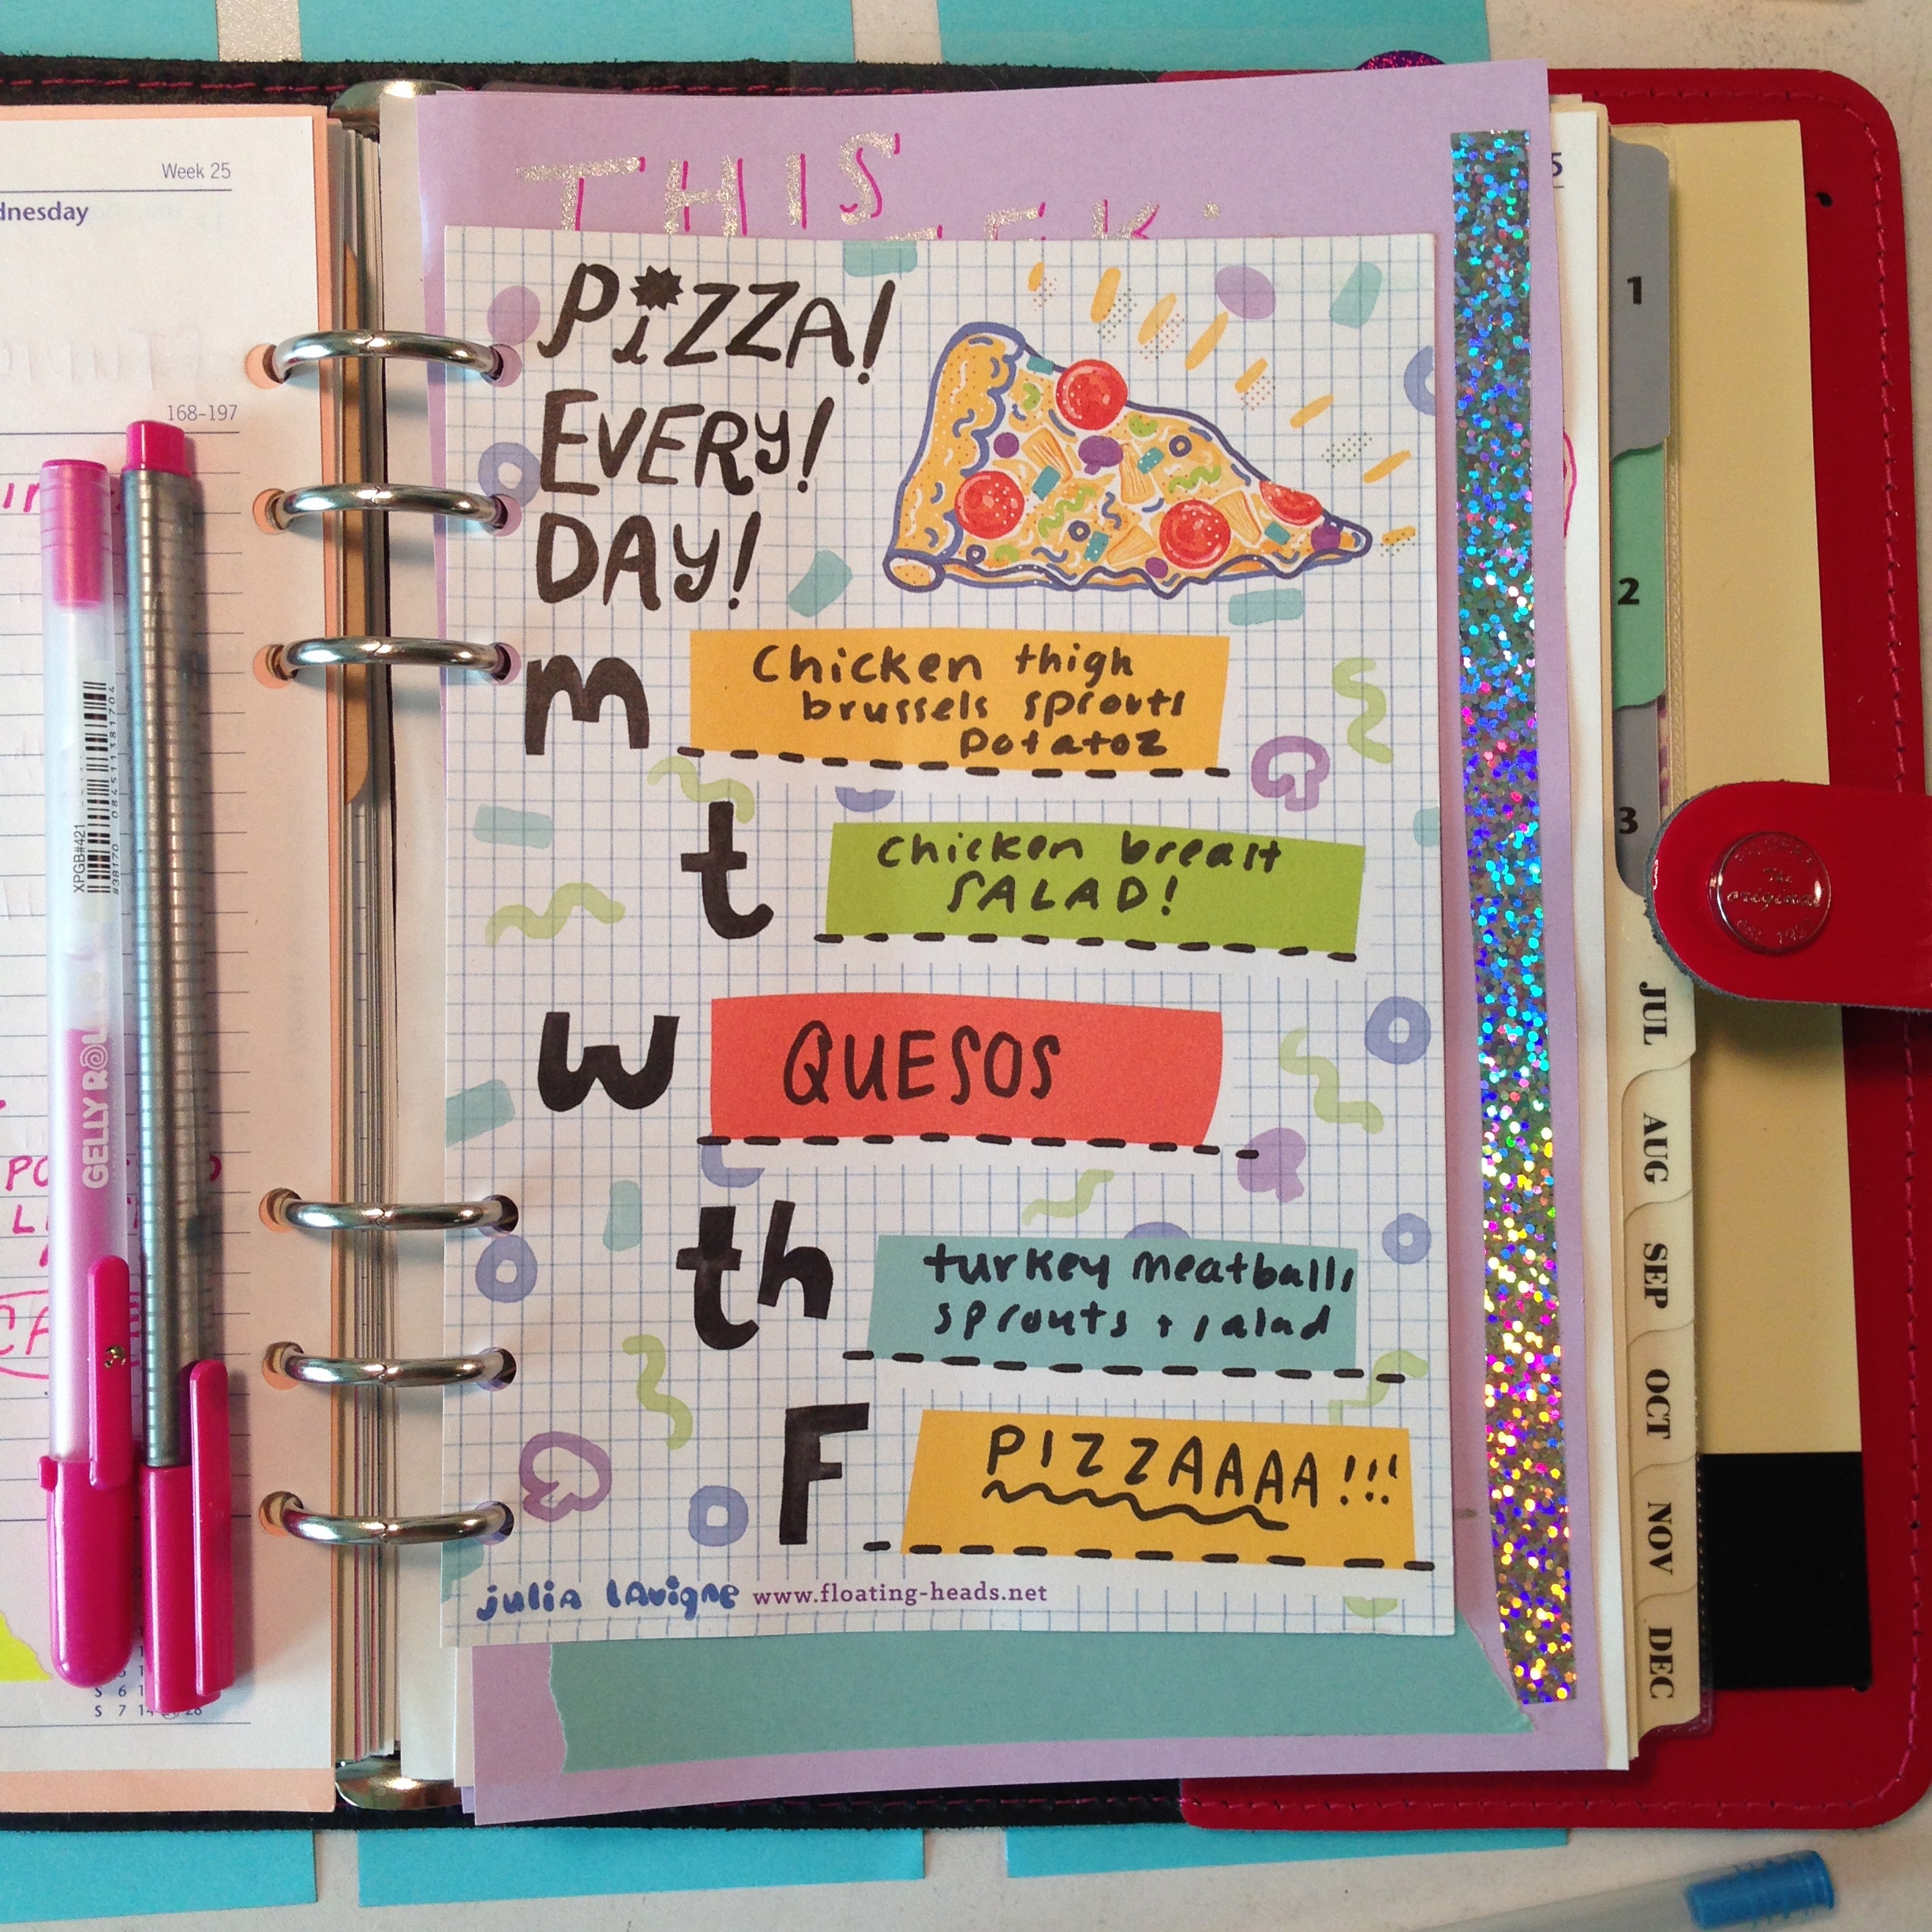 Week 25
168-197
XPGB#421
GELLY ROLL
THIS
PiZZA!
EVERY!
DAY!
m
Chicken thigh
brussels sprouts
potatoz
t
chicken breast
SALAD!
w
QUESOS
th
turkey meatballs
sprouts + salad
F
PIZZAAAA!!!
julia lavigne www.floating-heads.net
1
2
3
The
original
JUL
AUG
SEP
OCT
NOV
DEC